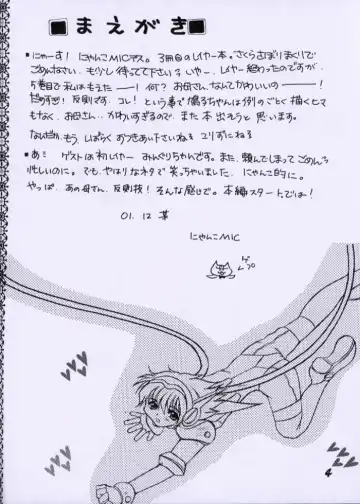 まえがき
・にゃーす！ にゃんこMICデス。3冊目のレイヤー本。さくらさぼりまくりで
ごめんなさい。もう少し待って下さいネ。いやー、レイヤー終わったのですが、
5巻目で私はもえたーー！何？お母さん、なんてかわいいのーーー！
だめすぎ！反則です。コレ！という事で
もなく、お母さん… かわいすぎるので、また本出そうと思います。
なんだか、もう、しばらくおつきあい下さいねる ユリずにねる
・あミ ゲストは初レイヤー みんぐりちゃんです。また、頼んでしまってごめんね
忙しいのに。でも、やはりなネタで笑っちゃいました、にゃんこ的に。
やっぱ、あの母さん、反則技！そんな感じで。本編スタートでは！
01. 12 某
にゃんこMIC
ゲ
レプ
4